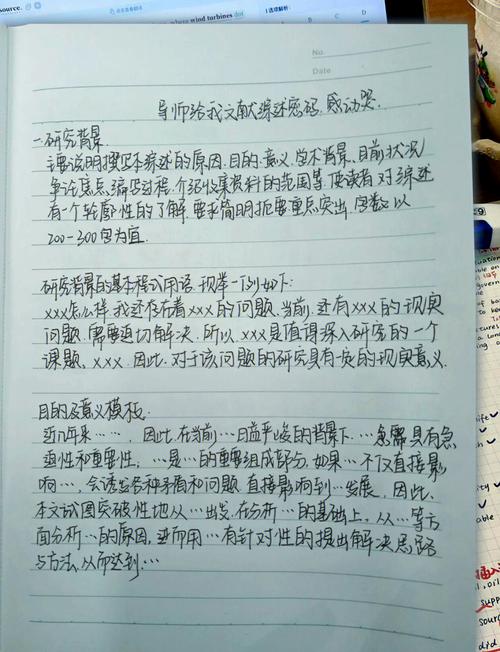 source.
where wind turbines
No.
Date
导师给我文献综述密码,感动哭.
一.研究背景
主要说明撰写本综述的原因.目的.意义.学术背景.目前状况
争论焦点.编写过程.介绍收集资料的范围等.使读者对综述
有一个轮廓性的了解.要求简明扼要重点突出.字数以
200-300句为宜.
研究背景的基本程式用语.现举一例如下:
xxx怎么样.我还存在着xxx的问题.当前.还有xxx的现实
问题.需要迫切解决.所以.xxx是值得深入研究的一个
课题.xxx.因此.对于该问题的研究具有一次的现实意义.
目的及意义模板.
近几年来……,因此.在当前…日益严峻的背景下.…急需具有急
迫性和重要性,…是…的重要组成部分.如果…不仅直接影
响…,会诱发各种矛盾和问题.直接影响到…发展.因此.
本文试图突破性地从…出发.在分析…的基础上,从…等方
面分析…的原因,进而用…有针对性的提出解决思路
与方法.从而达到…